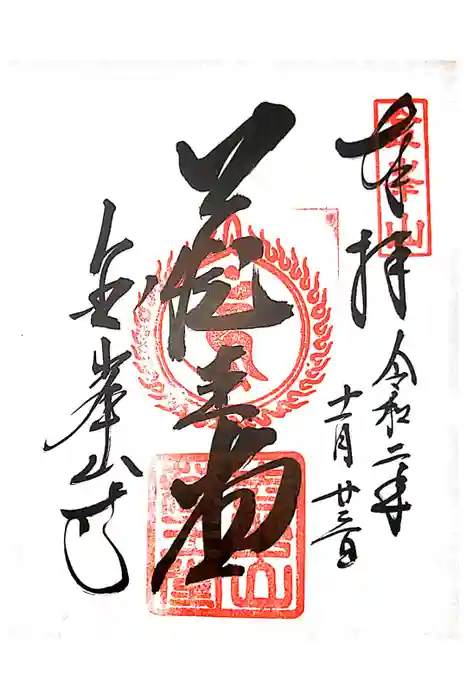 金峯山
奉拝
令和二年
十一月廿三日
蔵王堂
金峯山寺